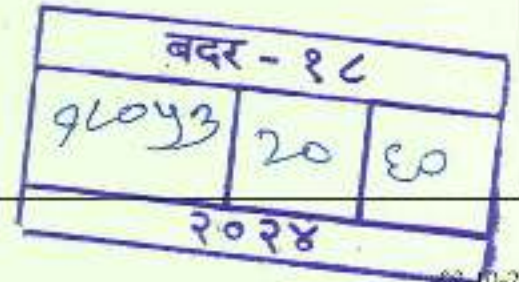 बदर - १८
१८०५३ २० ६०
२०२४